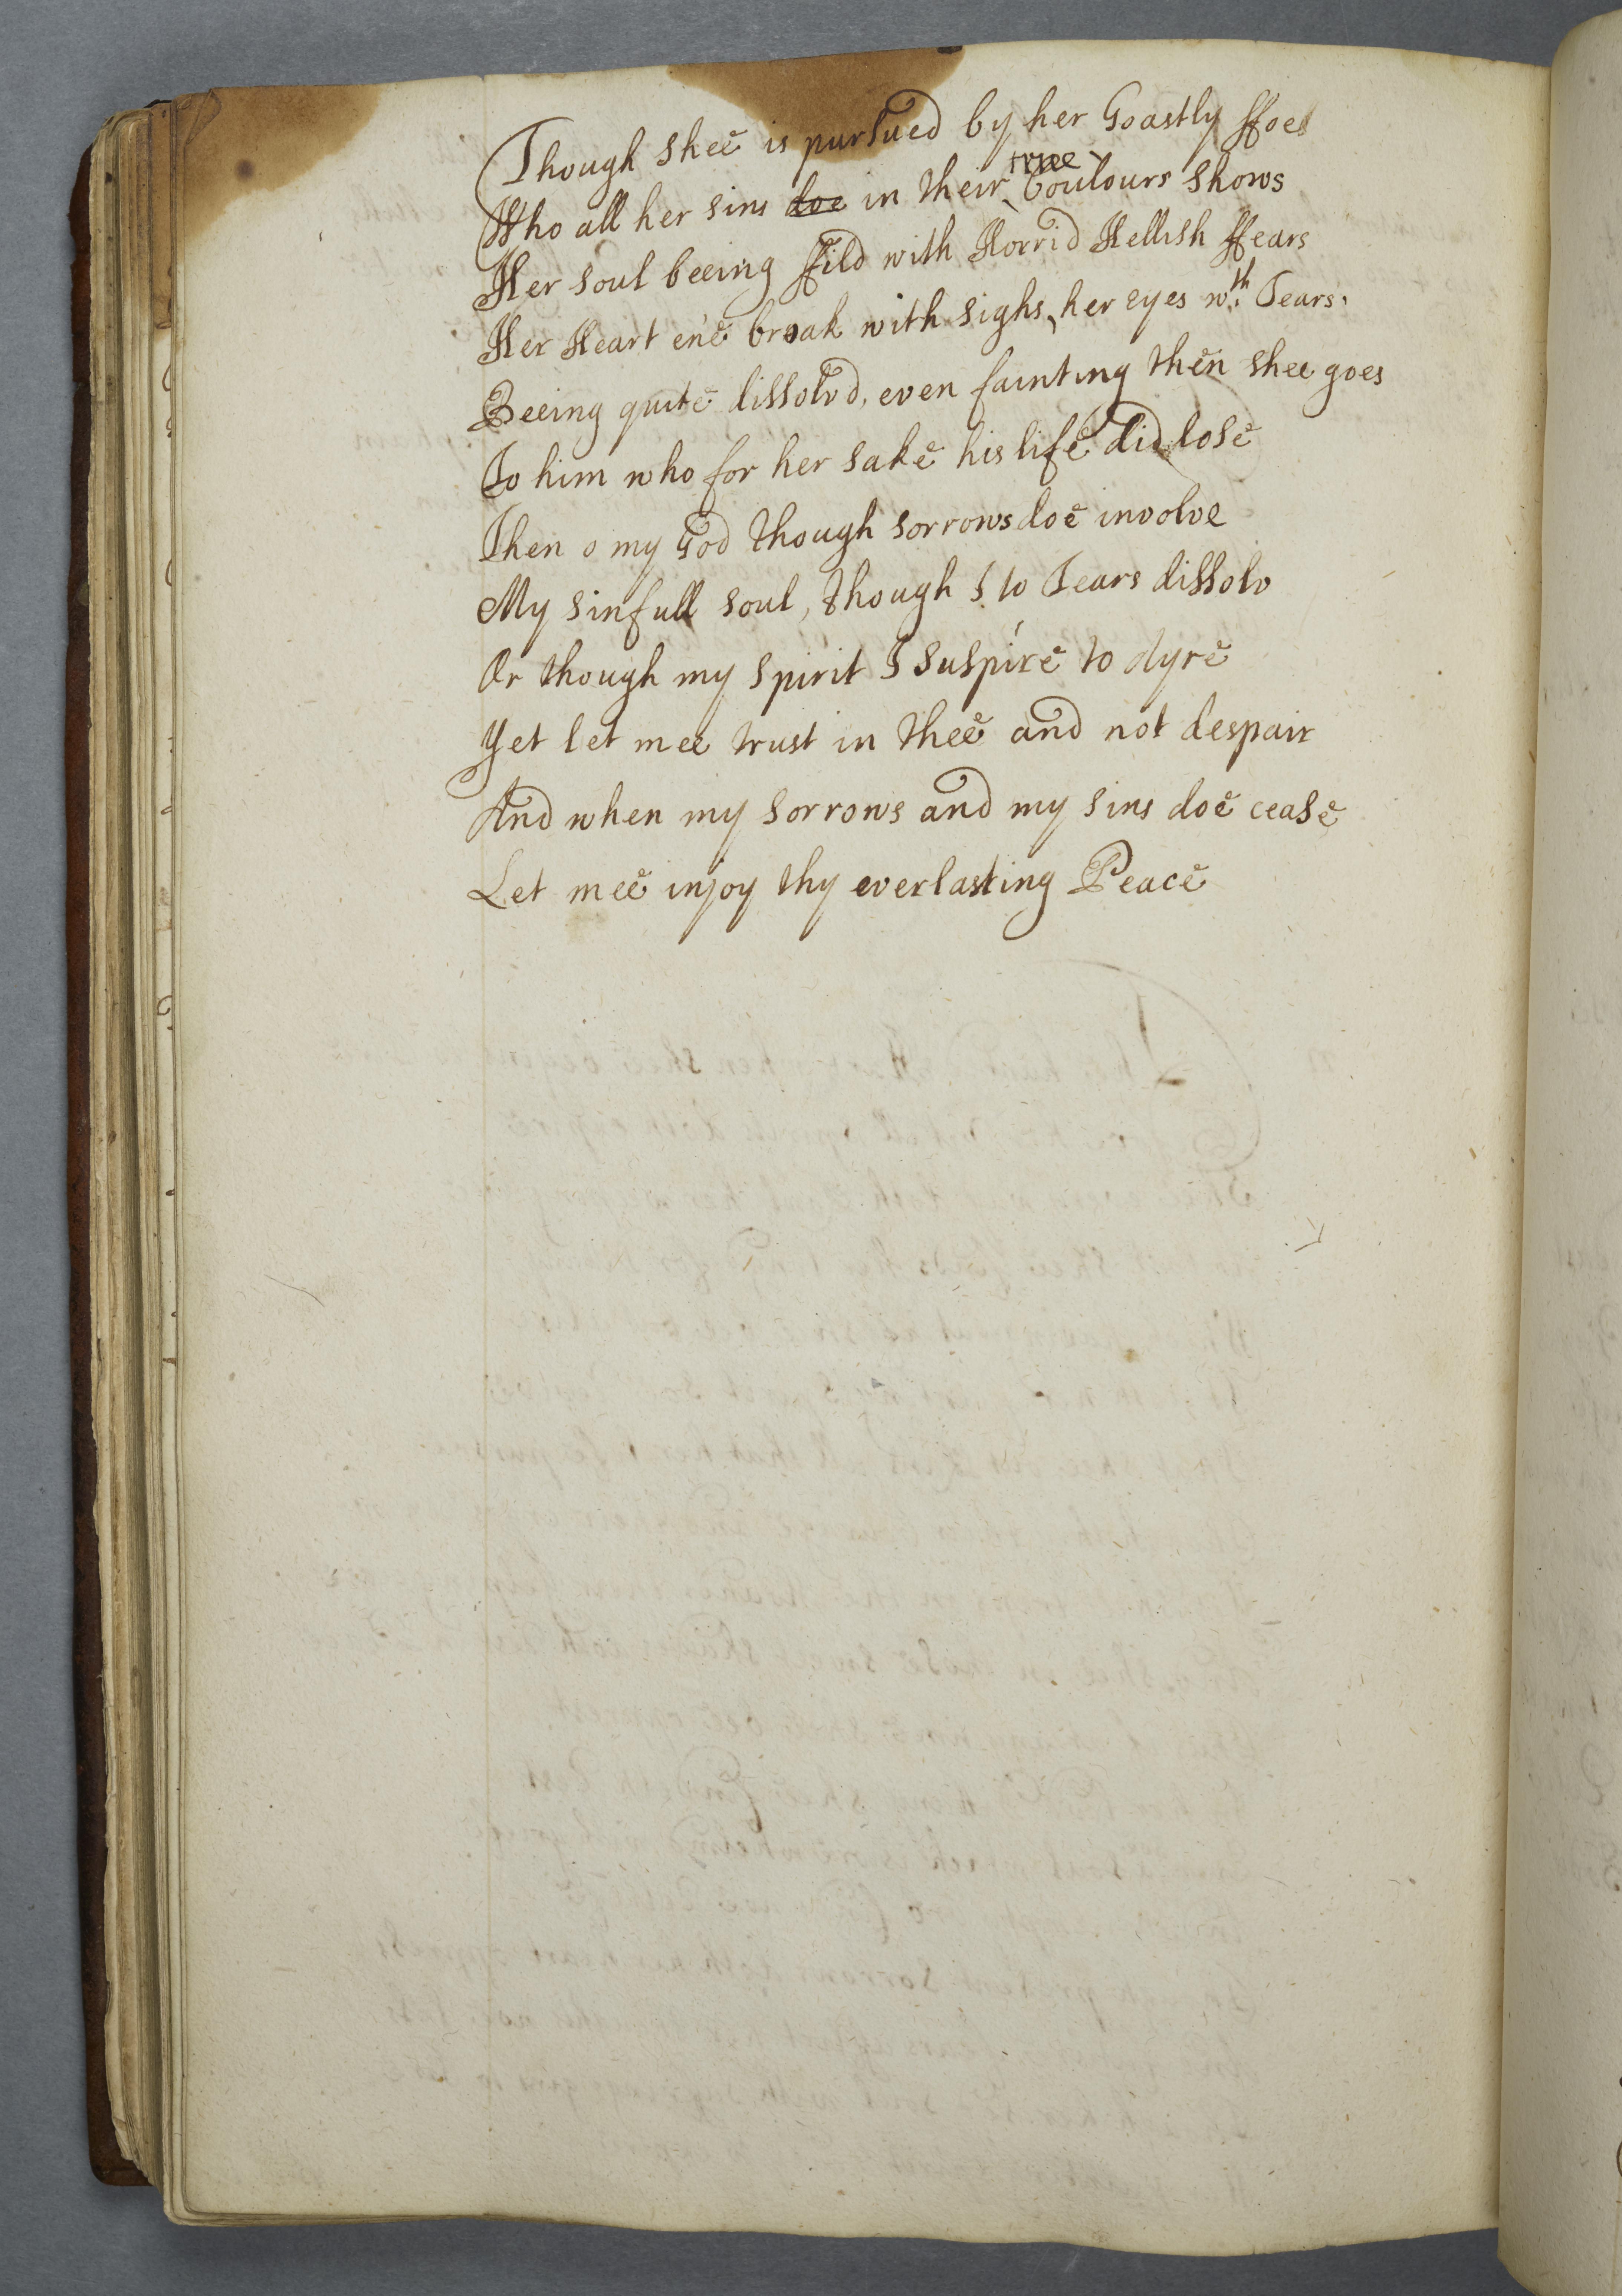 Though shee is pursued by her Goastly ffoes
Who all her sins doe in their true Coulours shows
Her soul beeing ffild with Horrid Hellish ffears
Her Heart e'ne break with sighs, her eyes wth Tears.
Beeing quite dissolv'd, even fainting then shee goes
To him who for her sake his life did lose
Then o my God though sorrows doe involve
My sinfull soul, though I to Tears dissolv
Or though my spirit I suspire to Ayre
Yet let mee trust in thee and not despair
And when my sorrows and my sins doe cease
Let mee injoy thy everlasting Peace